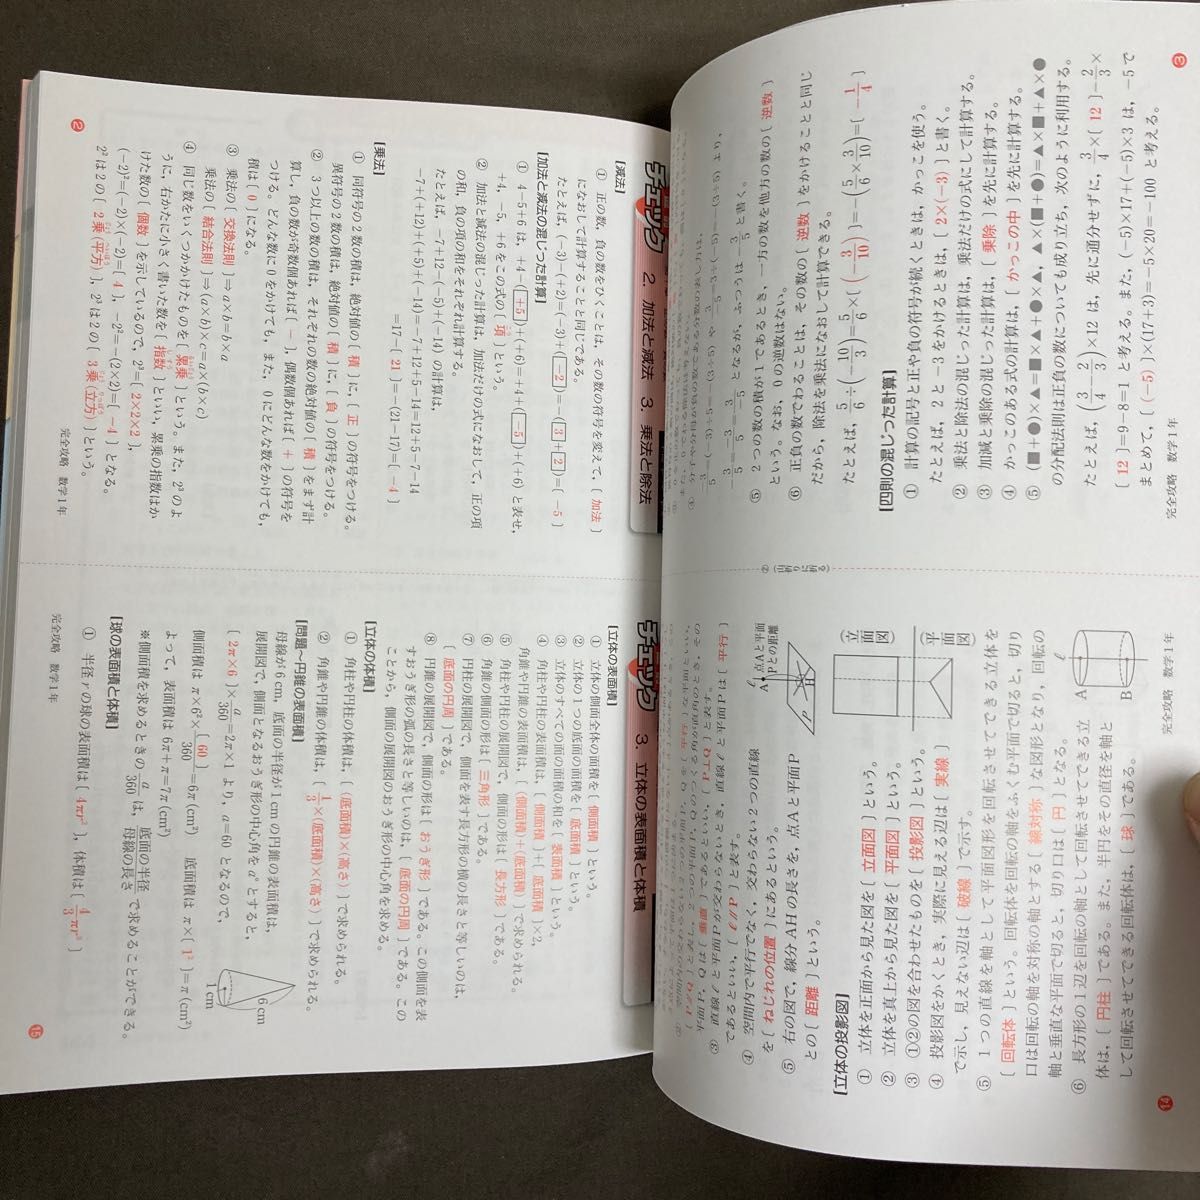 チェック 2. 加法と減法 3. 乗法と除法
[減法]
① 正の数，負の数をひくことは，その数の符号を変えて，〔 加法 〕
になおして計算することと同じである。
たとえば，(−3)−(+2)=(−3)+(−2)=−(3+2)=〔 −5 〕
[加法と減法の混じった計算]
① 4−5+6 は，+4−(+5)+(+6)=+4+(−5)+(+6) と表せ，
+4，−5，+6 をこの式の〔 項 〕という。
② 加法と減法の混じった計算は，加法だけの式になおして，正の項
の和，負の項の和をそれぞれ計算する。
たとえば，−7+12−(−5)+(−14) の計算は，
−7+(+12)+(+5)+(−14)=−7+12+5−14=12+5−7−14
=17−〔 21 〕=−(21−17)=〔 −4 〕
[乗法]
① 同符号の2数の積は，絶対値の〔 積 〕に，〔 正 〕の符号をつける。
異符号の2数の積は，絶対値の〔 積 〕に，〔 負 〕の符号をつける。
② 3つ以上の数の積は，それぞれの数の絶対値の〔 積 〕をまず計
算し，負の数が奇数個あれば〔 − 〕，偶数個あれば〔 + 〕の符号を
つける。どんな数に0をかけても，また，0にどんな数をかけても，
積は〔 0 〕になる。
③ 乗法の〔 交換法則 〕⇒a×b=b×a
乗法の〔 結合法則 〕⇒(a×b)×c=a×(b×c)
④ 同じ数をいくつかかけたものを〔 累乗 〕という。また，2³のよ
うに，右かたに小さく書いた数を〔 指数 〕といい，累乗の指数はか
けた数の〔 個数 〕を示しているので，2³=〔 2×2×2 〕，
(−2)²=(−2)×(−2)=〔 4 〕，−2²=−(2×2)=〔 −4 〕となる。
2²は2の〔 2乗(平方) 〕，2³は2の〔 3乗(立方) 〕という。
② 完全攻略 数学1年
チェック 3. 立体の表面積と体積
[立体の表面積]
① 立体の側面全体の面積を〔 側面積 〕という。
② 立体の1つの底面の面積を〔 底面積 〕という。
③ 立体のすべての面の面積の和を〔 表面積 〕という。
④ 角柱や円柱の表面積は，〔 側面積 〕+〔 底面積 〕×2，
角錐や円錐の表面積は，〔(側面積)+(底面積)〕で求められる。
⑤ 角柱や円柱の展開図で，側面の形は〔 長方形 〕である。
⑥ 角錐の側面の形は〔 三角形 〕である。
⑦ 円柱の展開図で，側面を表す長方形の横の長さと等しいのは，
〔 底面の円周 〕である。
⑧ 円錐の展開図で，側面の形は〔 おうぎ形 〕である。この側面を表
すおうぎ形の弧の長さと等しいのは，〔 底面の円周 〕である。この
ことから，側面の展開図のおうぎ形の中心角を求める。
[立体の体積]
① 角柱や円柱の体積は，〔(底面積)×(高さ)〕で求められる。
② 角錐や円錐の体積は，〔 1/3×(底面積)×(高さ)〕で求められる。
[問題〜円錐の表面積]
母線が6cm，底面の半径が1cmの円錐の表面積は，
展開図で，側面となるおうぎ形の中心角をa°とすると，
〔 2π×6 〕×a/360=2π×1 より，a=60 となるので，
側面積は π×6²×〔60〕/360=6π(cm²) 底面積は π×〔 1² 〕=π(cm²)
よって，表面積は 6π+π=7π(cm²)
6cm
1cm
※側面積を求めるときの a/360 は，底面の半径/母線の長さ で求めることができる。
[球の表面積と体積]
① 半径rの球の表面積は〔 4πr² 〕，体積は〔 4/3πr³ 〕
完全攻略 数学1年 ⑮
⑤ 2つの数の積が1であるとき，一方の数を他方の数の〔 逆数 〕
という。なお，0の逆数はない。
⑥ 正負の数でわることは，その数の〔 逆数 〕をかけることと同じ
だから，除法を乗法になおして計算できる。
たとえば，5/6÷(−10/3)=5/6×(−3/10)=−(5/6×3/10)=〔 −1/4 〕
[四則の混じった計算]
① 計算の記号と正や負の符号が続くときは，かっこを使う。
たとえば，2と−3をかけるときは，〔 2×(−3) 〕と書く。
② 乗法と除法の混じった計算は，乗法だけの式にして計算する。
③ 加減と乗除の混じった計算は，〔 乗除 〕を先に計算する。
④ かっこのある式の計算は，〔 かっこの中 〕を先に計算する。
⑤ (■+●)×▲=■×▲+●×▲，▲×(■+●)=▲×■+▲×●
の分配法則は正負の数についても成り立ち，次のように利用する。
たとえば，(3/4−2/3)×12 は，先に通分せずに，3/4×〔 12 〕−2/3×
〔 12 〕=9−8=1 と考える。また，(−5)×17+(−5)×3 は，−5で
まとめて，〔 (−5) 〕×(17+3)=−5×20=−100 と考える。
完全攻略 数学1年 ③
②(山折りに折る)
③ 直線ℓと平面Pが交わらないとき，直線ℓと平面Pは〔 平行 〕
であるといい，〔 ℓ//P 〕と表す。
④ 空間内で平行でなく，交わらない2つの直線
を〔 ねじれの位置 〕にあるという。
⑤ 右の図で，線分AHの長さを，点Aと平面P
との〔 距離 〕という。
ℓ
A
点Aと平面
Pとの距離
H
P
[立体の投影図]
① 立体を正面から見た図を〔 立面図 〕という。
② 立体を真上から見た図を〔 平面図 〕という。
③ ①②の図を合わせたものを〔 投影図 〕という。
④ 投影図をかくとき，実際に見える辺は〔 実線 〕
で示し，見えない辺は〔 破線 〕で示す。
立面図
平面図
⑤ 1つの直線を軸として平面図形を回転させてできる立体を
〔 回転体 〕という。回転体を回転の軸をふくむ平面で切ると，切り
口は回転の軸を対称の軸とする〔 線対称 〕な図形となり，回転の
軸と垂直な平面で切ると，切り口は〔 円 〕となる。
⑥ 長方形の1辺を回転の軸として回転させてできる立
体は，〔 円柱 〕である。また，半円をその直径を軸と
して回転させてできる回転体は，〔 球 〕である。
ℓ
A
B
⑭ 完全攻略 数学1年